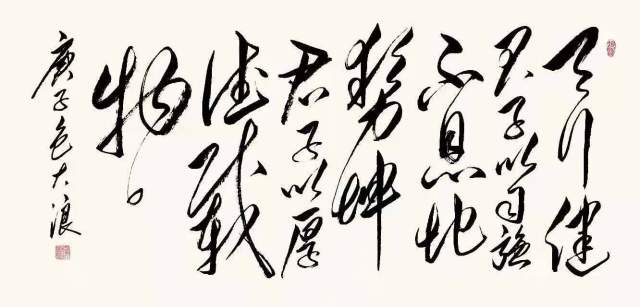 天行健
君子以自強
不息地
勢坤
君子以厚
德載
物
庚子大浪